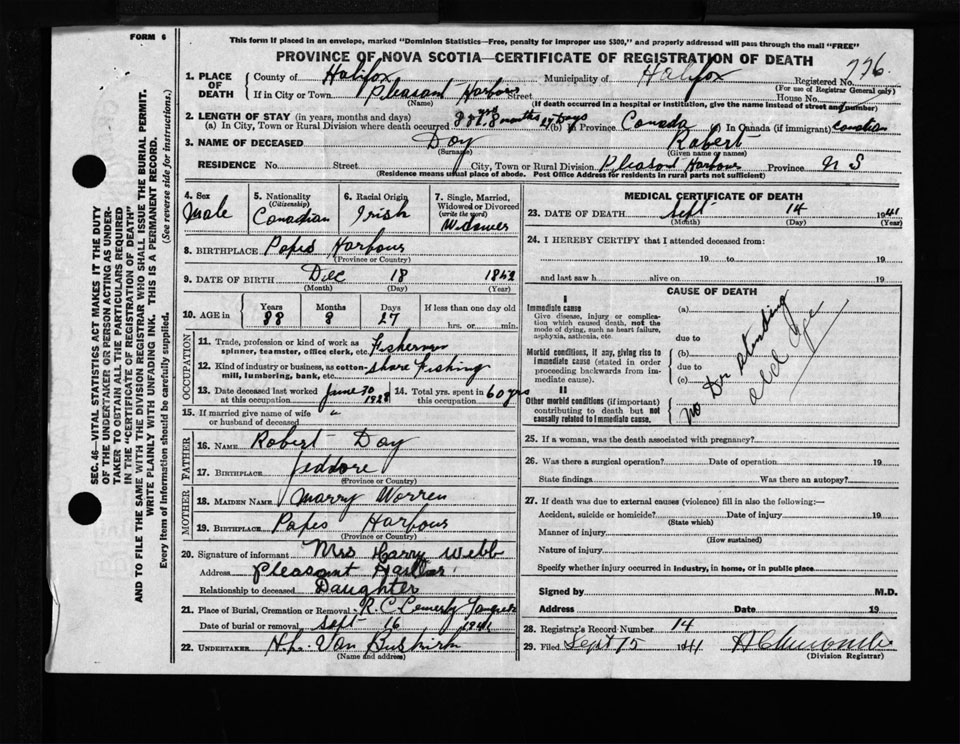 FORM 6
This form if placed in an envelope, marked "Dominion Statistics—Free, penalty for improper use $300," and properly addressed will pass through the mail "FREE"
PROVINCE OF NOVA SCOTIA—CERTIFICATE OF REGISTRATION OF DEATH
SEC. 46—VITAL STATISTICS ACT MAKES IT THE DUTY
OF THE UNDERTAKER OR PERSON ACTING AS UNDER-
TAKER TO OBTAIN ALL THE PARTICULARS REQUIRED
IN THE "CERTIFICATE OF REGISTRATION OF DEATH"
AND TO FILE THE SAME WITH THE DIVISION REGISTRAR WHO SHALL ISSUE THE BURIAL PERMIT.
WRITE PLAINLY WITH UNFADING INK. THIS IS A PERMANENT RECORD.
Every item of information should be carefully supplied. (See reverse side for instructions.)
1. PLACE OF DEATH County of Halifax Municipality of Halifax Registered No. 776.
(For use of Registrar General only)
If in City or Town Pleasant Harbour Street House No.
(Name) (If death occurred in a hospital or institution, give the name instead of street and number)
2. LENGTH OF STAY (in years, months and days)
(a) In City, Town or Rural Division where death occurred 88 yrs 8 months 27 days (b) In Province Canada (c) In Canada (if immigrant) Canadian
3. NAME OF DECEASED Day Robert
(Surname) (Given name or names)
RESIDENCE No. Street City, Town or Rural Division Pleasant Harbour Province N S
(Residence means usual place of abode. Post Office Address for residents in rural parts not sufficient)
4. Sex Male
5. Nationality (Citizenship) Canadian
6. Racial Origin Irish
7. Single, Married, Widowed or Divorced (write the word) Widower
8. BIRTHPLACE Popes Harbour
(Province or Country)
9. DATE OF BIRTH Dec 18 1852
(Month) (Day) (Year)
10. AGE in Years 88 Months 8 Days 27 If less than one day old hrs. or min.
OCCUPATION
11. Trade, profession or kind of work as spinner, teamster, office clerk, etc. Fisherman
12. Kind of industry or business, as cotton-mill, lumbering, bank, etc. Shore Fishing
13. Date deceased last worked at this occupation June 30 1928 14. Total yrs. spent in this occupation 60 yrs
15. If married give name of wife or husband of deceased "
FATHER
16. NAME Robert Day
17. BIRTHPLACE Jeddore
(Province or Country)
MOTHER
18. MAIDEN NAME Marry Worren
19. BIRTHPLACE Popes Harbour
(Province or Country)
20. Signature of informant Mrs Harry Webb
Address Pleasant Harbor
Relationship to deceased Daughter
21. Place of Burial, Cremation or Removal R. C. Cemerty
Date of burial or removal Sept 16 1941
22. UNDERTAKER H. L. Van Buskirk
(Name and address)
MEDICAL CERTIFICATE OF DEATH
23. DATE OF DEATH Sept 14 1941
(Month) (Day) (Year)
24. I HEREBY CERTIFY that I attended deceased from:
19 to 19
and last saw h alive on 19
CAUSE OF DEATH
I
Immediate cause
Give disease, injury or complication which caused death, not the mode of dying, such as heart failure, asphyxia, asthenia, etc.
Morbid conditions, if any, giving rise to immediate cause (stated in order proceeding backwards from immediate cause).
II
Other morbid conditions (if important) contributing to death but not causally related to immediate cause.
(a)
due to
(b)
due to
(c)
no Dr attending
old age
25. If a woman, was the death associated with pregnancy?
26. Was there a surgical operation? Date of operation 19
State findings Was there an autopsy?
27. If death was due to external causes (violence) fill in also the following:—
Accident, suicide or homicide? Date of injury 19
(State which)
Manner of injury
(How sustained)
Nature of injury
Specify whether injury occurred in industry, in home, or in public place
Signed by M.D.
Address Date 19
28. Registrar's Record Number 14
29. Filed Sept 15 1941
(Division Registrar)